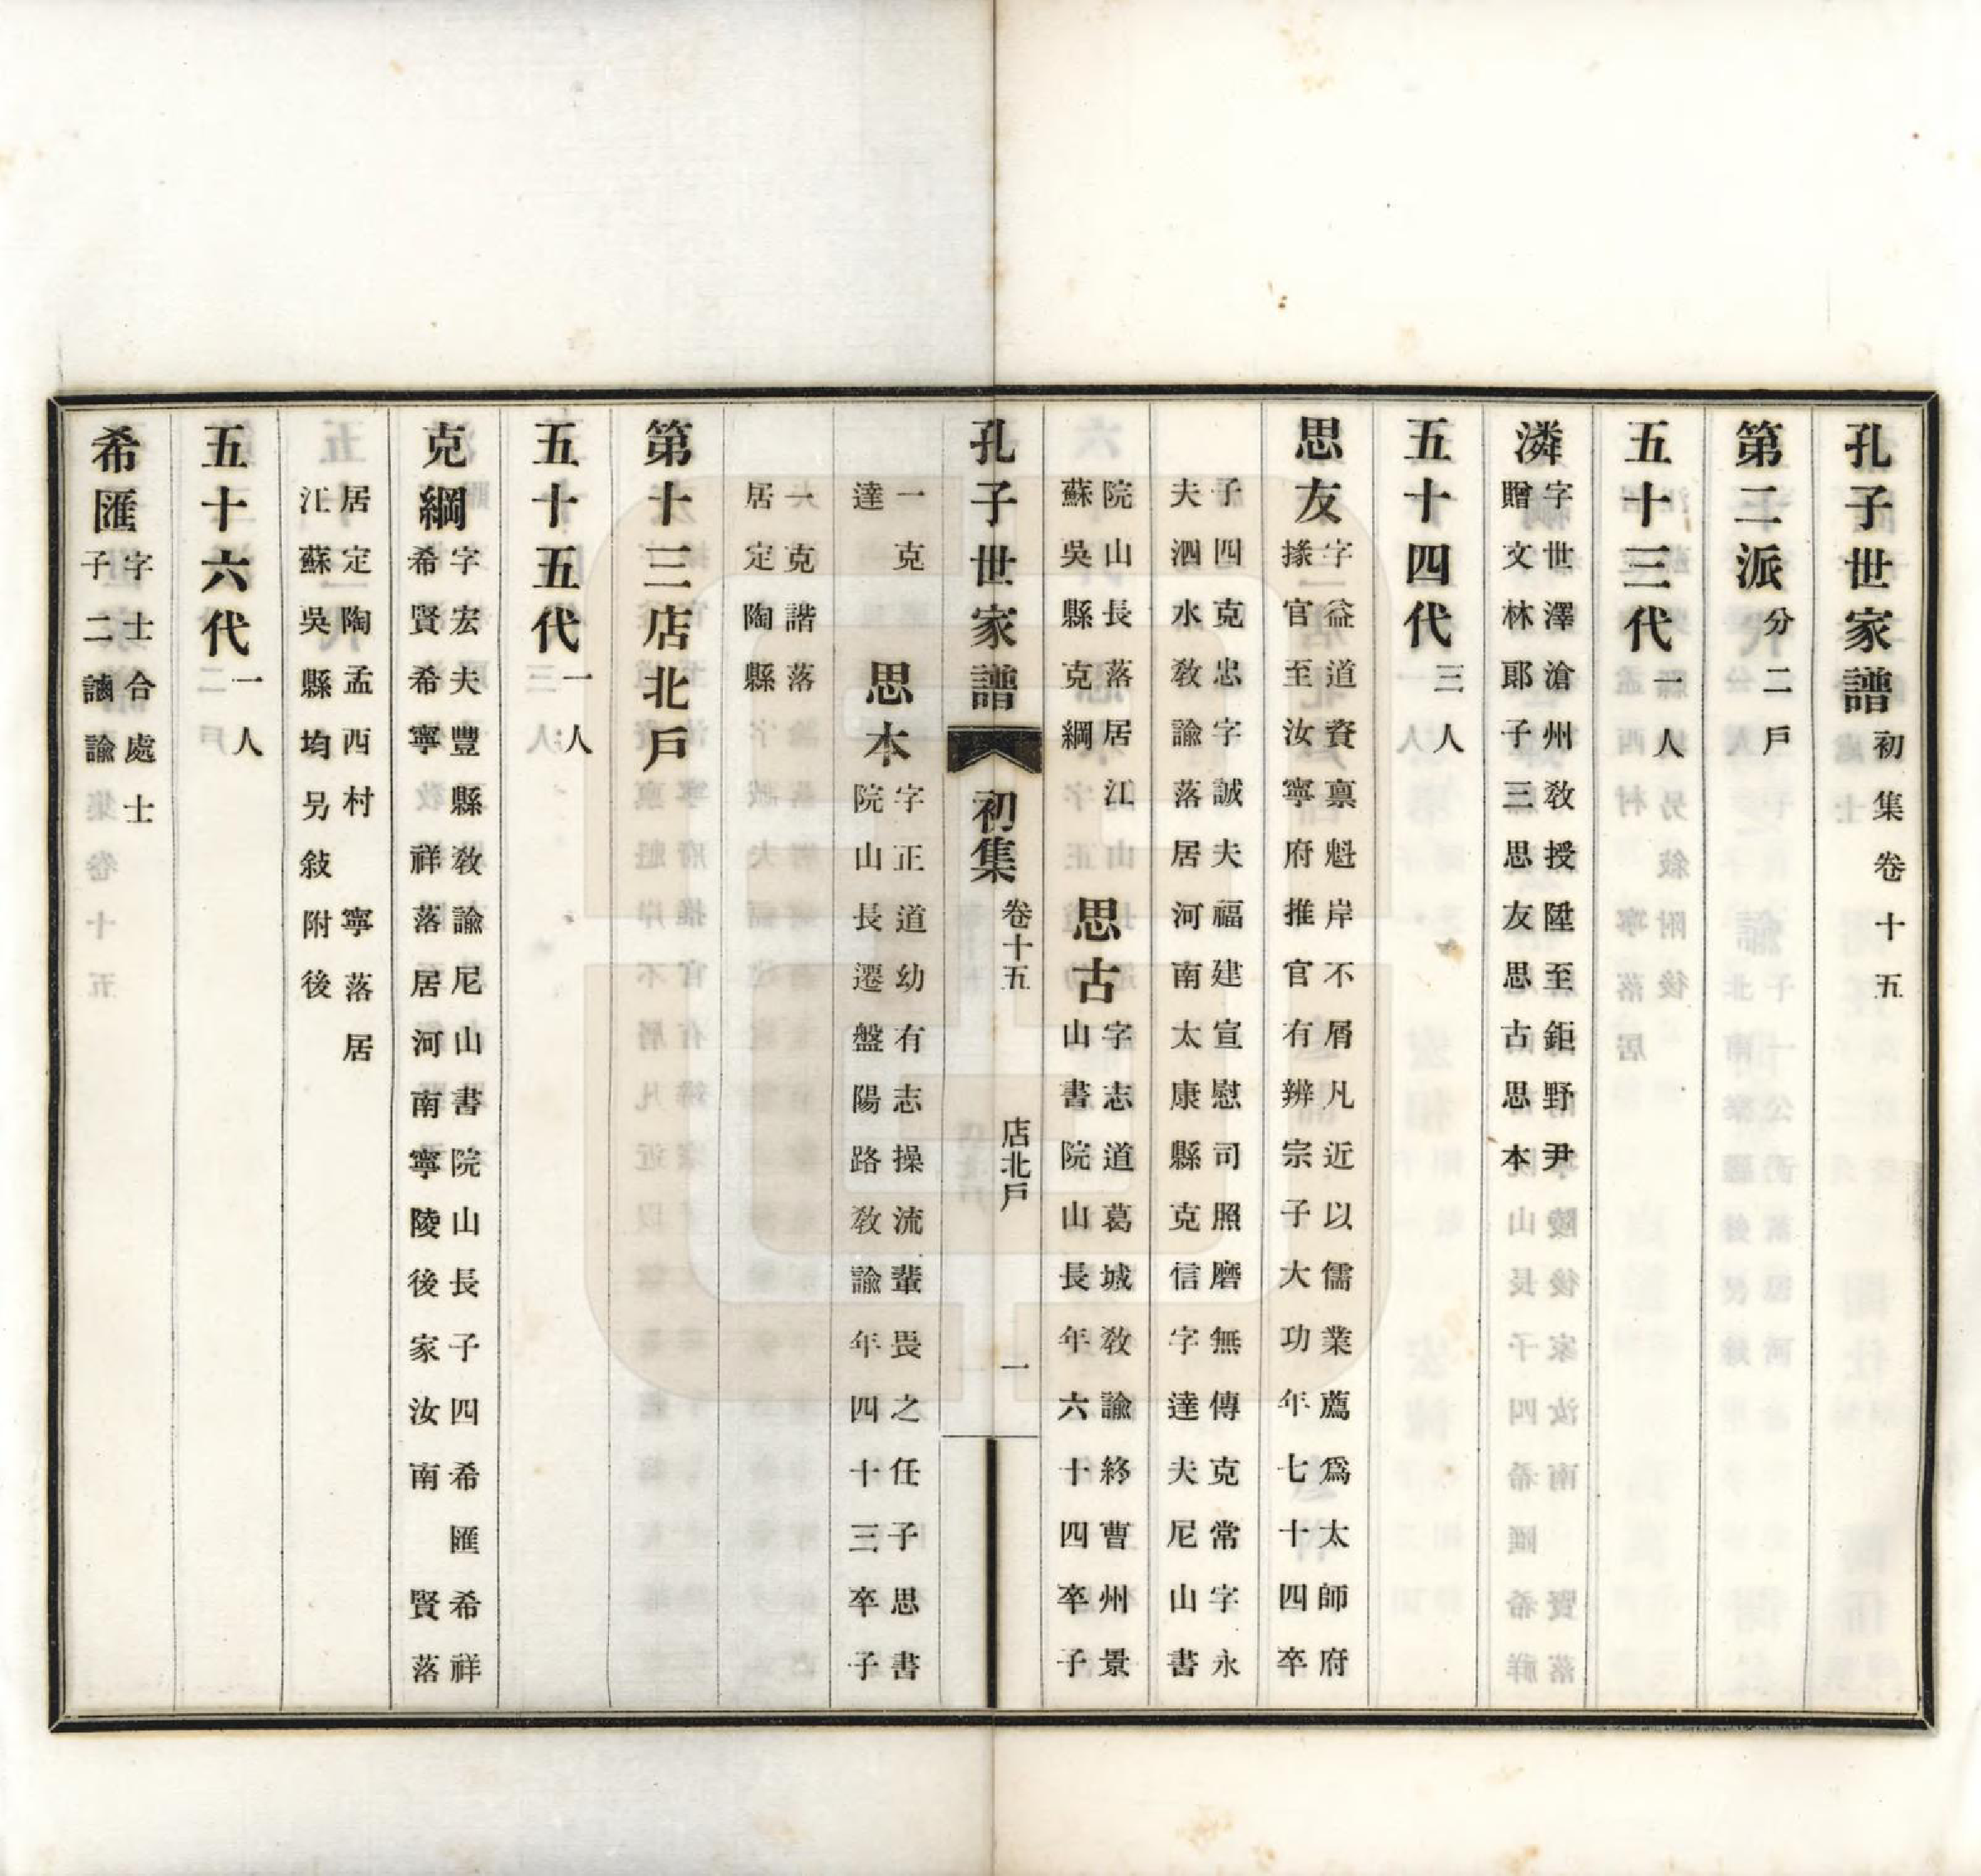 孔子世家譜初集卷十五
第二派分二戶
五十三代一人
潾字世澤滄州教授陞至鉅野尹
贈文林郎子三思友思古思本
五十四代三人
思友字益道資禀魁岸不屑凡近以儒業薦爲太師府
掾官至汝寧府推官有辨宗子大功年七十四卒
子四克忠字誠夫福建宣慰司照磨無傳克常字永
夫泗水教諭落居河南太康縣克信字達夫尼山書
院山長落居江
蘇吳縣克綱
思古字志道葛城教諭終曹州景
山書院山長年六十四卒子
孔子世家譜 初集 卷十五 店北戶 一
一克
達
思本字正道幼有志操流輩畏之任子思書
院山長遷盤陽路教諭年四十三卒子
一克諧落
居定陶縣
第十三店北戶
五十五代一人
克綱字宏夫豐縣教諭尼山書院山長子四希匯希祥
希賢希寧 祥落居河南寧陵後家汝南 賢落
居定陶孟西村 寧落居
江蘇吳縣均另敍附後
五十六代一人
希匯字士合處士
子二議諭